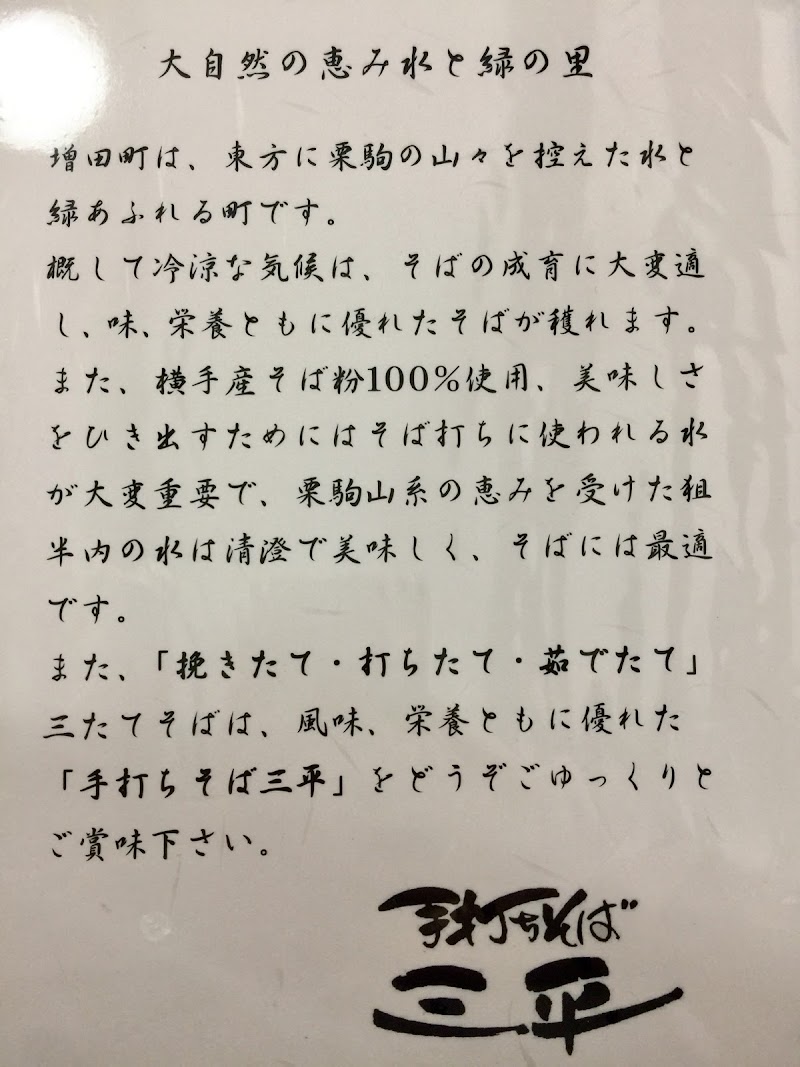 大自然の恵み水と緑の里
増田町は、東方に栗駒の山々を控えた水と
緑あふれる町です。
概して冷涼な気候は、そばの成育に大変適
し、味、栄養ともに優れたそばが穫れます。
また、横手産そば粉100%使用、美味しさ
をひき出すためにはそば打ちに使われる水
が大変重要で、栗駒山系の恵みを受けた狙
半内の水は清澄で美味しく、そばには最適
です。
また、「挽きたて・打ちたて・茹でたて」
三たてそばは、風味、栄養ともに優れた
「手打ちそば三平」をどうぞごゆっくりと
ご賞味下さい。
手打ちそば
三平